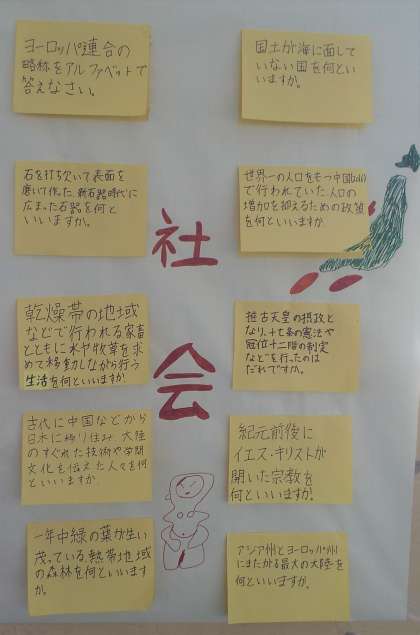 ヨーロッパ連合の
略称をアルファベットで
答えなさい。
国土が海に面して
いない国を何とい
いますか。
石を打ち欠いて表面を
磨いて作た、新石器時代に
広まった石器を何と
いいますか。
世界一の人口をもつ中国
で行われていた、人口の
増加を抑えるための政策
を何といいますか
社
会
乾燥帯の地域
などで行われる家畜
とともに水や牧草を求
めて移動しながら行う
生活を何といいますか
推古天皇の摂政と
なり、十七条の憲法や
冠位十二階の制定
などを行ったのは
だれですか。
古代に中国などから
日本に移り住み、大陸
のすぐれた技術や学問
文化を伝えた人々を何
といいますか
紀元前後に
イエス・キリストが
開いた宗教を
何といいますか。
一年中緑の葉が生い
茂っている、熱帯地域
の森林を何といいます
か。
アジア州とヨーロッパ州
にまたがる最大の大陸を
何といいますか。